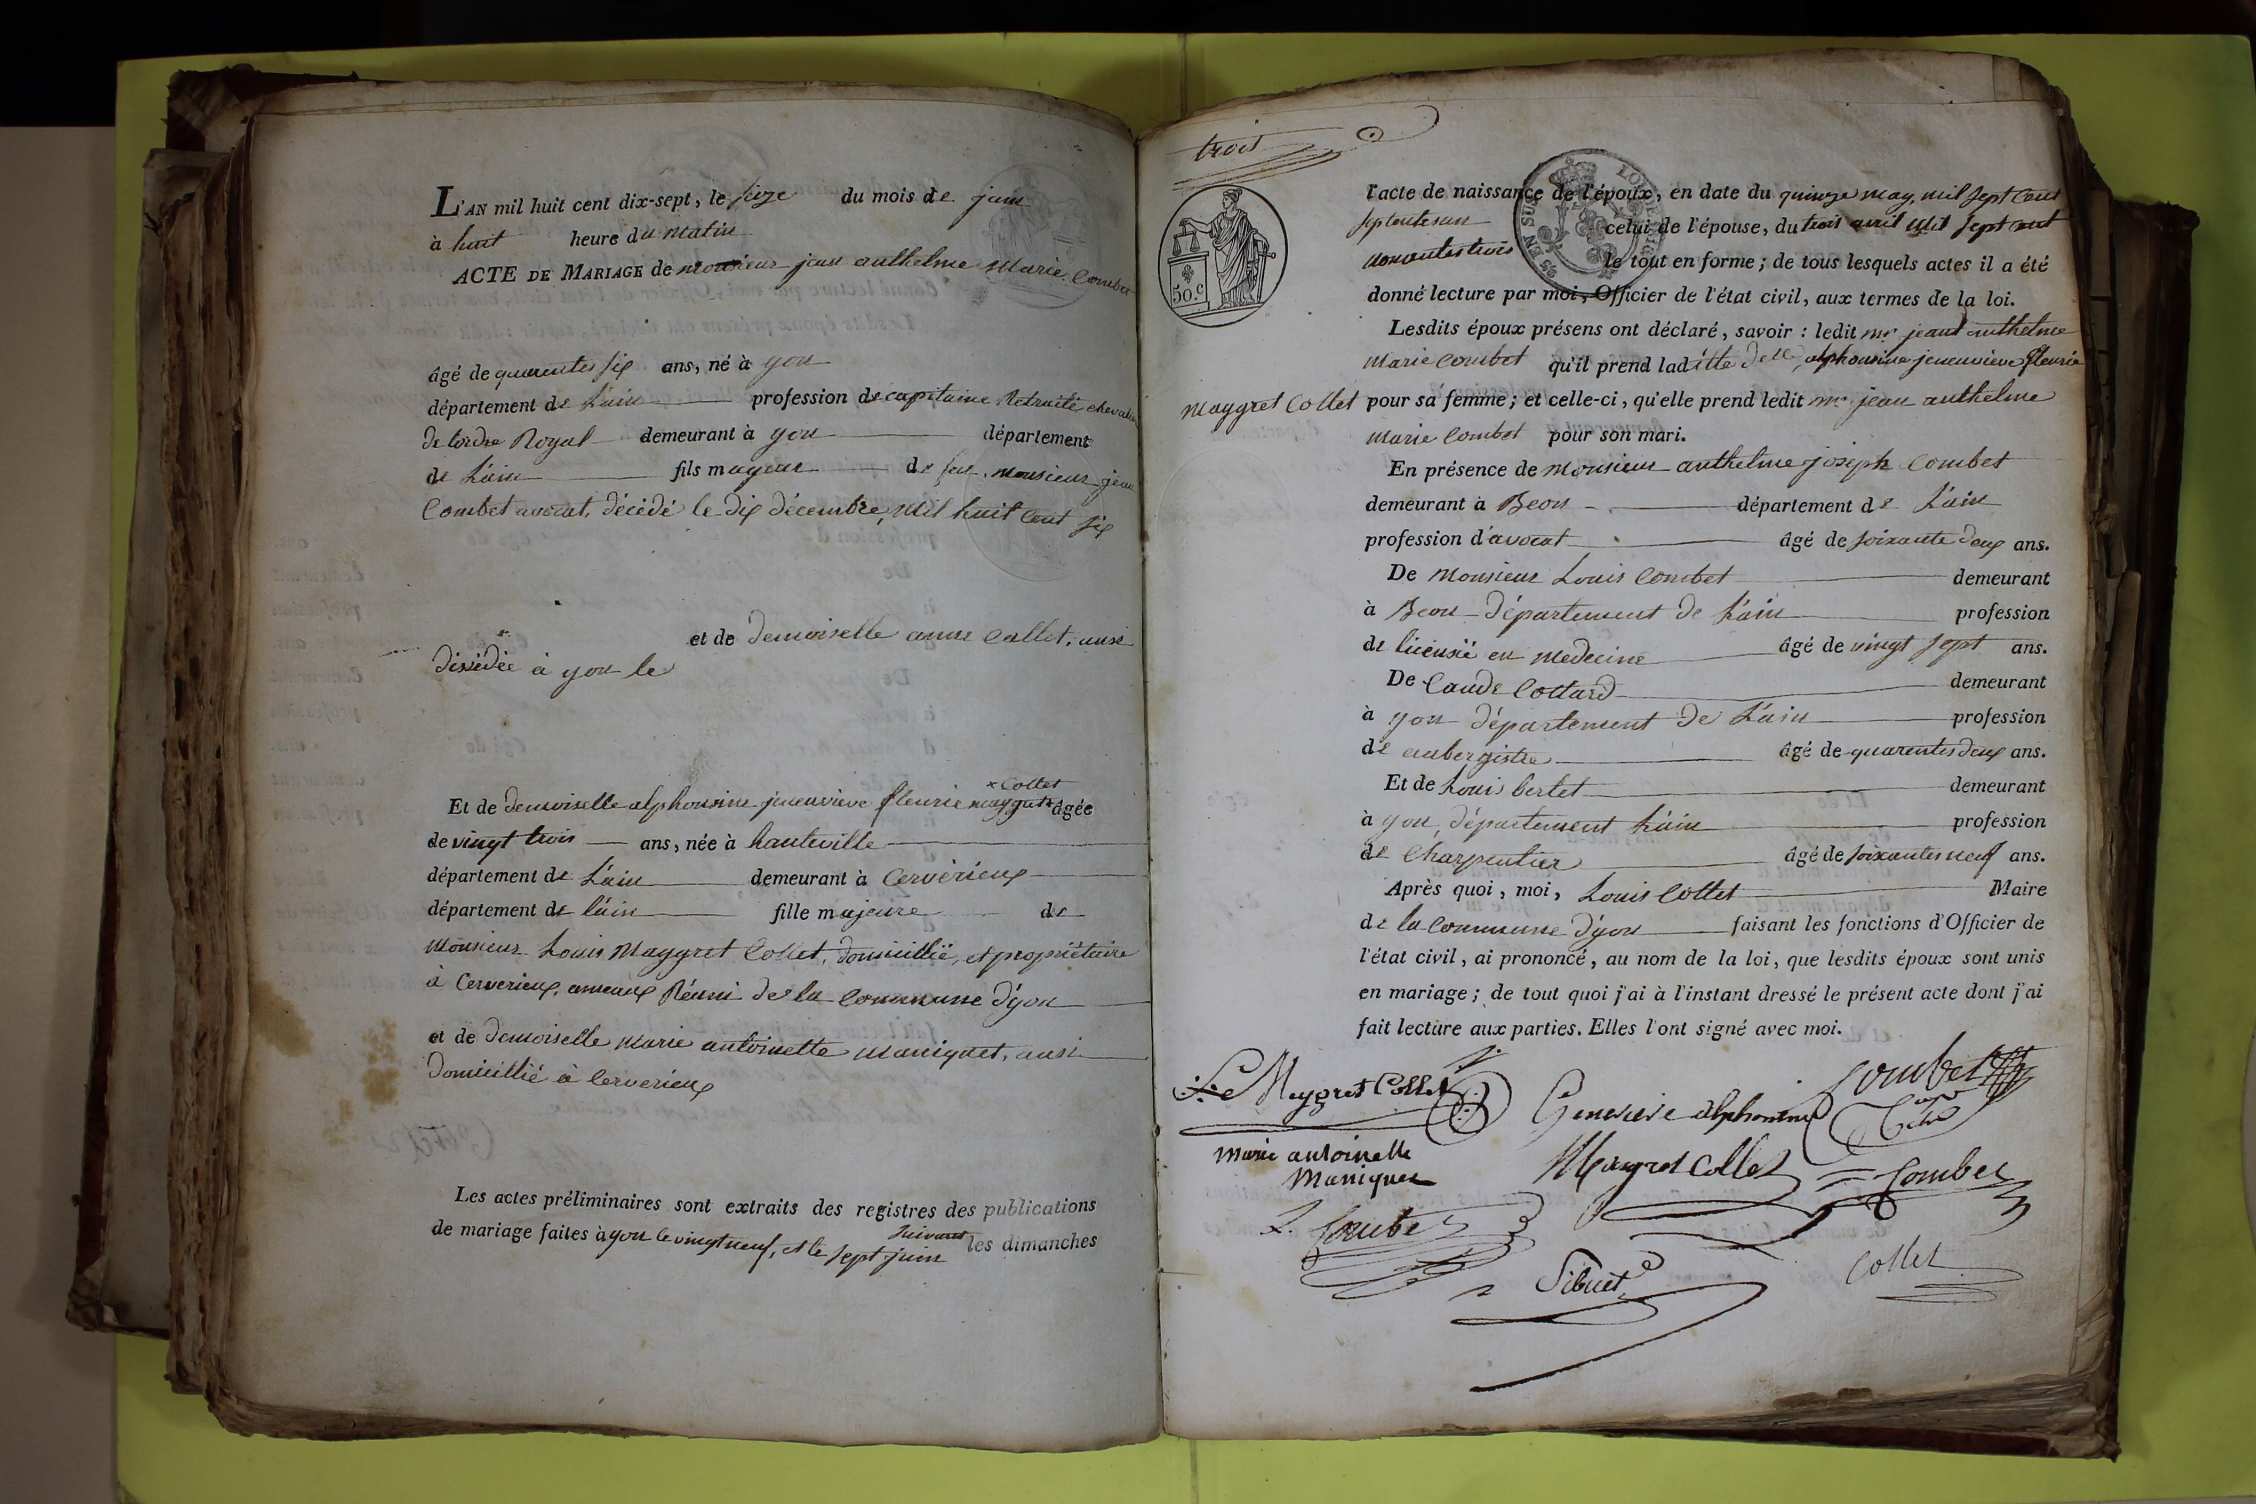 L'AN mil huit cent dix-sept, le seize du mois de juin
à huit heure du matin
ACTE DE MARIAGE de monsieur jean anthelme Marie Combet
âgé de quarentes six ans, né à yon
département de L'ain profession de capitaine Retraité chevalier
de lordre Royal demeurant à yon département
de L'ain fils mageur de feu monsieur jean
Combet avocat, décédé le dix décembre, mil huit cent six
et de demoiselle anne Collet, aussi
dissédée à yon le
× Collet
Et de demoiselle alphonsine jeneuvieve fleurie maygret âgée
de vingt trois ans, née à hauteville
département de L'ain demeurant à Cervérieux
département de l'ain fille majeure de
Monsieur Louis Maygret Collet, domicillié, et propriétaire
à Cerverieux, anneaux Réuni de la Commune d'yon
et de demoiselle marie antoinette maniquet, aussi
domicillié à Cerverieux
Les actes préliminaires sont extraits des registres des publications
suivant
de mariage faites à yon le vingt neuf, et le sept juin les dimanches
trois
50.c
l'acte de naissance de l'époux, en date du quinze may, mil sept cent
septente un celui de l'épouse, du trois avril mil sept cent
nonantes trois le tout en forme; de tous lesquels actes il a été
donné lecture par moi, Officier de l'état civil, aux termes de la loi.
Lesdits époux présens ont déclaré, savoir : ledit mr. jean anthelme
Marie Combet qu'il prend laditte delle, alphonsine jeneuvieve fleurie
Maygret Collet pour sa femme; et celle-ci, qu'elle prend ledit mr jean anthelme
Marie Combet pour son mari.
En présence de Monsieur anthelme joseph Combet
demeurant à Beon département de L'ain
profession d'avocat âgé de soixante deux ans.
De Monsieur Louis Combet demeurant
à Beon département de L'ain profession
de licensié en medecine âgé de vingt sept ans.
De Caude Cottard demeurant
à yon département de L'ain profession
de aubergistre âgé de quarentes deux ans.
Et de Louis bertet demeurant
à yon, département L'ain profession
de Charpentier âgé de soixantes neuf ans.
Après quoi, moi, Louis Collet Maire
de la Commune d'yon faisant les fonctions d'Officier de
l'état civil, ai prononcé, au nom de la loi, que lesdits époux sont unis
en mariage; de tout quoi j'ai à l'instant dressé le présent acte dont j'ai
fait lecture aux parties. Elles l'ont signé avec moi.
Maygret Collet
Combet
Genevieve alphonsine
marie antoinette
Maniquet
Maygret Collet
Combet
L. Combet
Sibuet
Collet